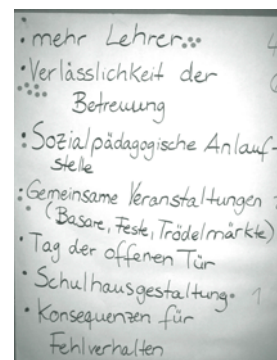 • mehr Lehrer
• Verlässlichkeit der
Betreuung
• Sozialpädagogische Anlauf-
stelle
• Gemeinsame Veranstaltungen
(Basare, Feste, Trödelmärkte)
• Tag der offenen Tür
• Schulhausgestaltung 1
• Konsequenzen für
Fehlverhalten